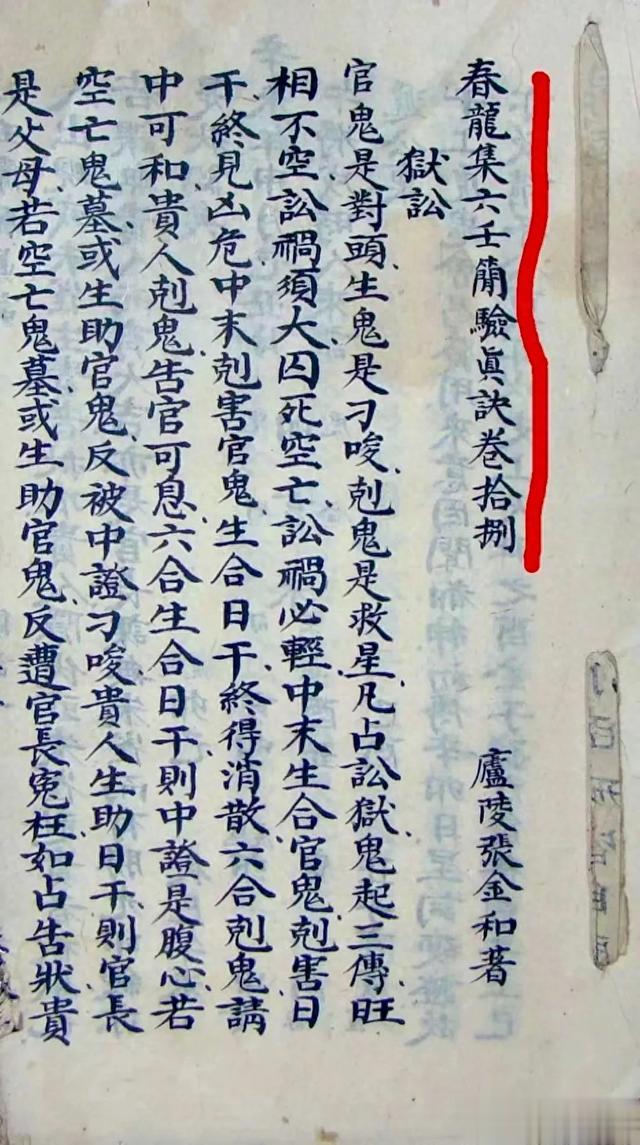 春龍集六壬簡驗眞訣卷拾捌　廬陵張金和著
獄訟
官鬼是對頭生鬼是刁唆尅鬼是救星凡占訟獄鬼起三傳旺
相不空訟禍須大囚死空亡訟禍必輕中末生合官鬼尅害日
干終見凶危中末尅害官鬼生合日干終得消散六合尅鬼請
中可和貴人尅鬼告官可息六合生合日干則中證是腹心若
空亡鬼墓或生助官鬼反被中證刁唆貴人生助日干則官長
是父母若空亡鬼墓或生助官鬼反遭官長寃枉如占告狀貴